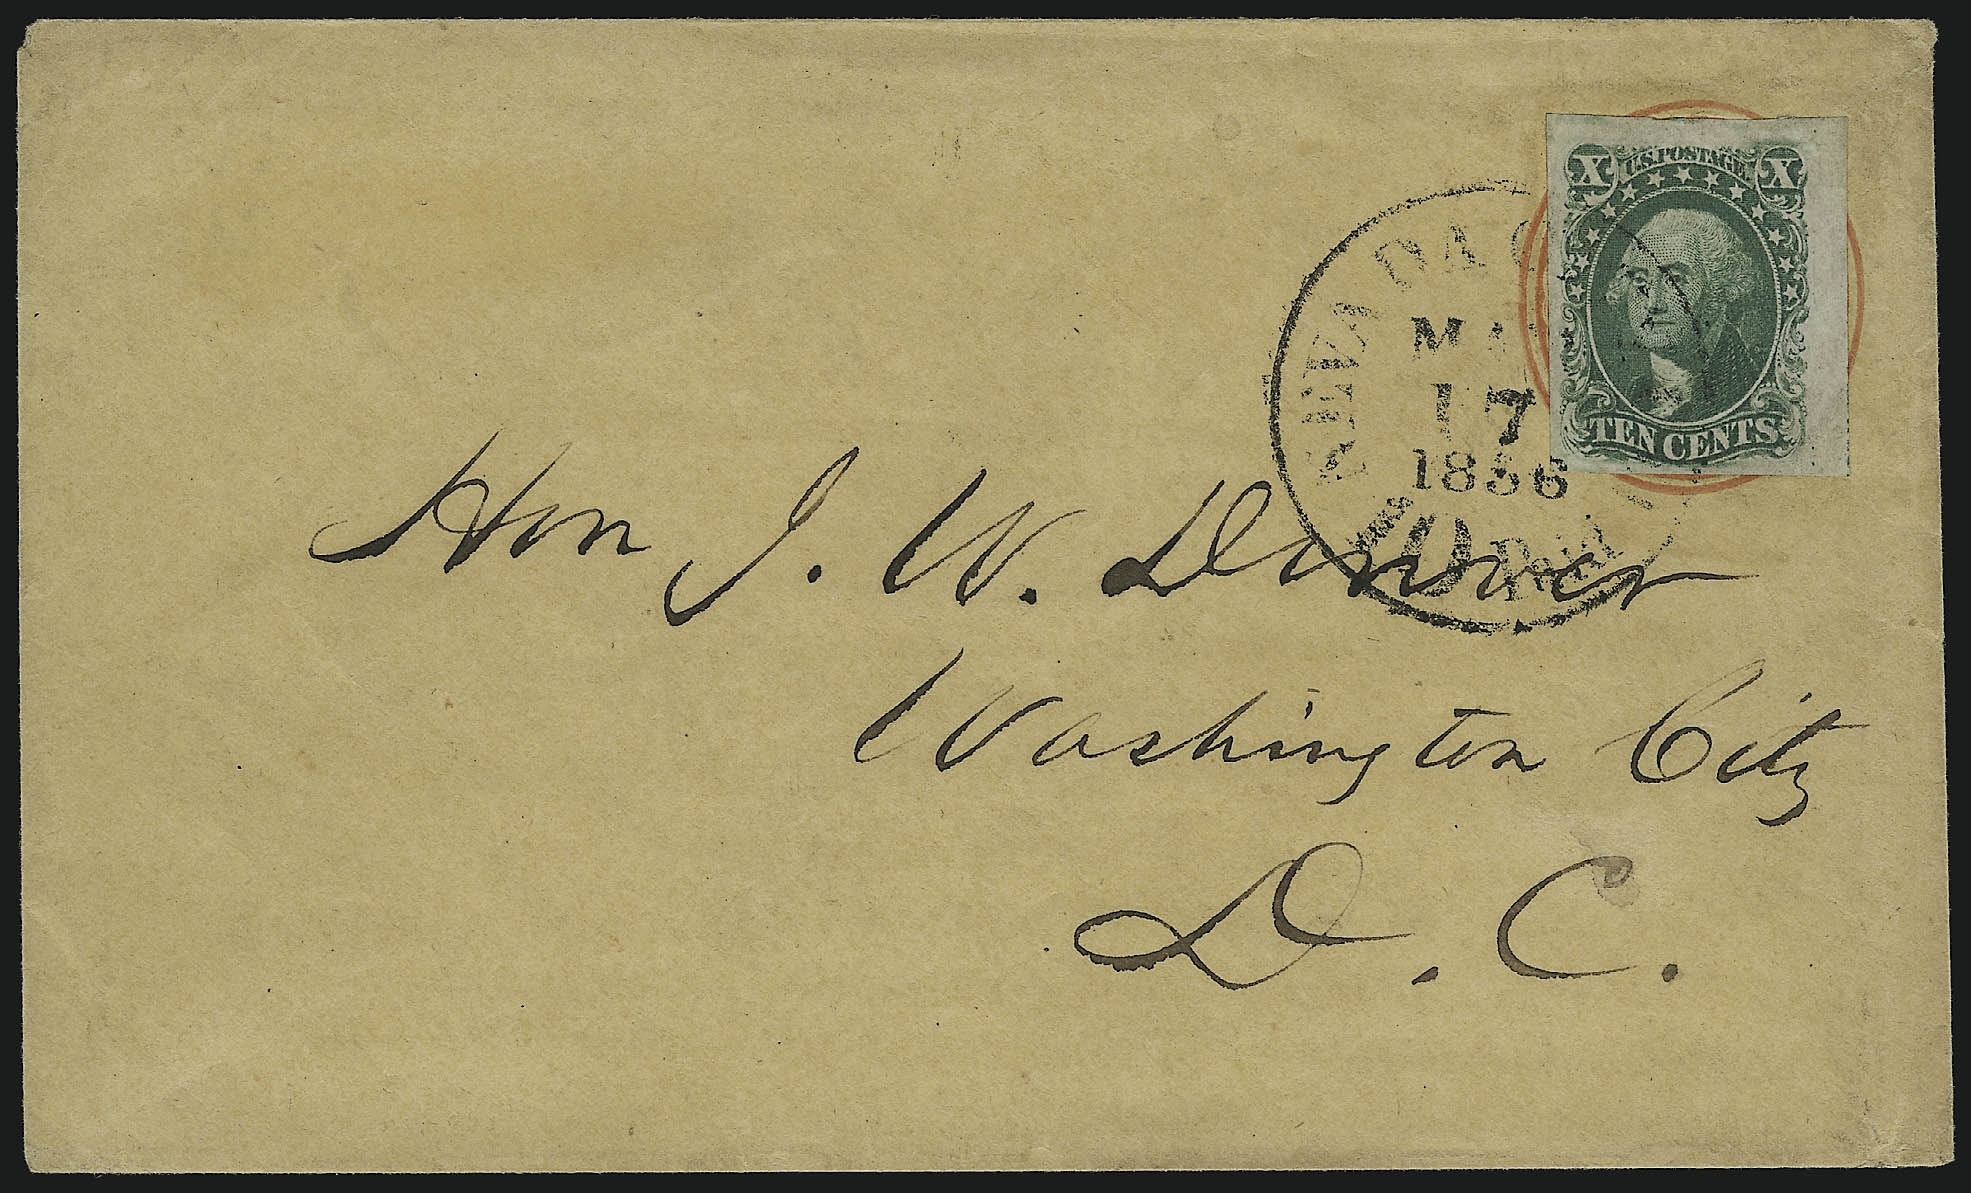 X U.S. POSTAGE X
TEN CENTS
NEVADA C
MA
17
1856
10
Hon J. W. Denver
Washington City
D. C.